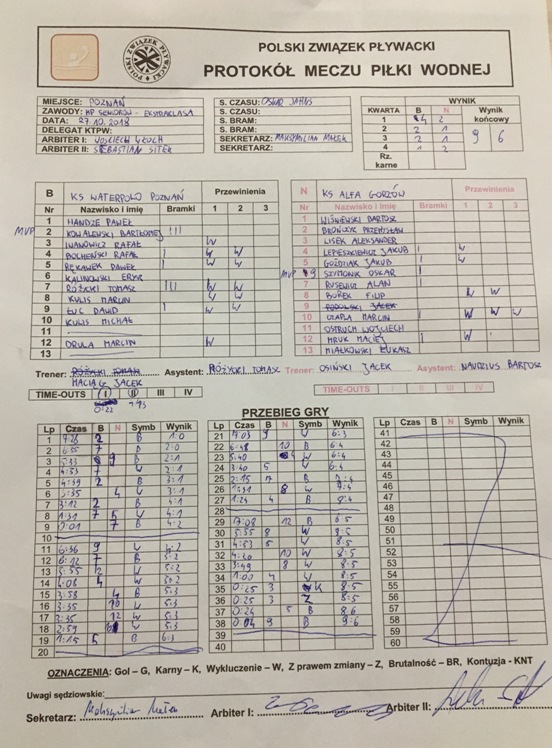 POLSKI ZWIĄZEK PŁYWACKI
POLSKI ZWIĄZEK PŁYWACKI
PROTOKÓŁ MECZU PIŁKI WODNEJ
MIEJSCE: POZNAŃ
ZAWODY: MP SENIORÓW - EKSTRAKLASA
DATA: 27.10.2018
DELEGAT KTPW:
ARBITER I: WOJCIECH
ARBITER II: SEBASTIAN SITEK
S. CZASU: OSKAR
S. CZASU:
S. BRAM:
S. BRAM:
SEKRETARZ: MAKSYMILIAN MAŁEK
SEKRETARZ:
WYNIK
KWARTA B N Wynik końcowy
1 4 2
2 2 1
3 2 1
4 1 2
9 6
Rz. karne
B KS WATERPOLO POZNAŃ Przewinienia
Nr Nazwisko i imię Bramki 1 2 3
1 HANDZE PAWEŁ
MVP 2 KOWALEWSKI BARTŁOMIEJ III
3 IWANOWICZ RAFAŁ W
4 BOCHEŃSKI RAFAŁ I W W
5 RĘKAWEK PAWEŁ I W W
6 KALINOWSKI ERYK
7 RÓŻYCKI TOMASZ III W W
8 KULIS MARCIN W W
9 ŁUC DAWID I W W
10 KULIS MICHAŁ
11
12 ORULA MARCIN W
13
N KS ALFA GORZÓW Przewinienia
Nr Nazwisko i imię Bramki 1 2 3
1 WIŚNIEWSKI BARTOSZ
2 BROŃCZYK PRZEMYSŁAW
3 LISEK ALEKSANDER
4 LEPESZKIEWICZ JAKUB I W
5 GOŹDZIAK JAKUB I W
MVP 9 SZYMONIK OSKAR I
7 RUSEWICZ ALAN I
8 BOREK FILIP W W
9 JACEK
10 CZAPLA MARCIN I W W W
11 OSTRUCH WOJCIECH
12 MRUK MACIEJ I W
13 MIAŁKOWSKI ŁUKASZ
Trener: RÓŻYCKI TOMASZ Asystent: RÓŻYCKI TOMASZ
MACIĄG JACEK
Trener: OSIŃSKI JACEK Asystent: NAUDZIUS BARTOSZ
TIME-OUTS I II III IV
0:22
TIME-OUTS I II III IV
PRZEBIEG GRY
Lp Czas B N Symb Wynik
1 7:28 2 B 1:0
2 6:55 7 B 2:0
3 5:33 9 B 2:1
4 4:53 7 W 2:1
5 4:39 2 B 3:1
6 3:35 4 W 3:1
7 3:12 2 B 4:1
8 1:31 7 5 W 4:1
9 0:01 7 B 4:2
10
11 6:36 9 W 4:2
12 6:12 7 B 5:2
13 5:55 12 W 5:2
14 4:08 4 W 5:2
15 3:58 4 B 5:3
16 3:55 10 W 5:3
17 3:35 12 W 5:3
18 2:59 W 5:3
19 1:15 5 B 6:3
20
21 7:03 9 W 6:3
22 6:48 10 B 6:4
23 5:40 W 6:4
24 3:40 5 W 6:4
25 2:15 7 B 7:4
26 1:31 8 W 7:4
27 1:24 4 B 8:4
28
29 7:08 12 B 8:5
30 5:55 8 W 8:5
31 4:53 8 W 8:5
32 4:20 10 W 8:5
33 3:49 8 W 8:5
34 1:00 4 W 8:5
35 0:25 3 K 8:5
36 0:25 3 Z 8:5
37 0:24 5 B 8:6
38 0:04 9 B 9:6
39
40
41
42
43
44
45
46
47
48
49
50
51
52
53
54
55
56
57
58
59
60
OZNACZENIA: Gol – G, Karny – K, Wykluczenie – W, Z prawem zmiany – Z, Brutalność – BR, Kontuzja - KNT
Uwagi sędziowskie:
Sekretarz: Maksymilian Małek Arbiter I: Arbiter II: